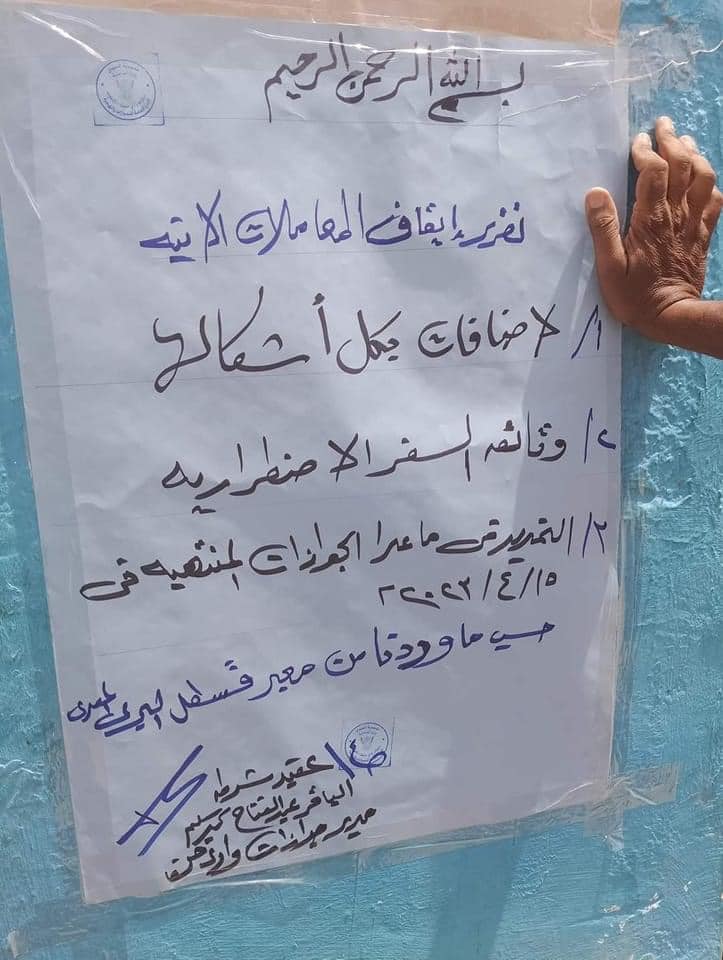 بسم الله الرحمن الرحيم
تقرير إيقاف المعاملات الاتيه
١/ لاضافات بكل أشكالها
٢/ وثائقه السفر الاضطراريه
٣/ التمديدتى ماعدا الجوازات المنتهيه فى
١٥/٤/٢٠٢٣
حسب ماوردنا من معبر قسطل البرى المصرى
عقيد شرطه
الباقر عبدالفتاح
مدير جوازات وادى حلفا